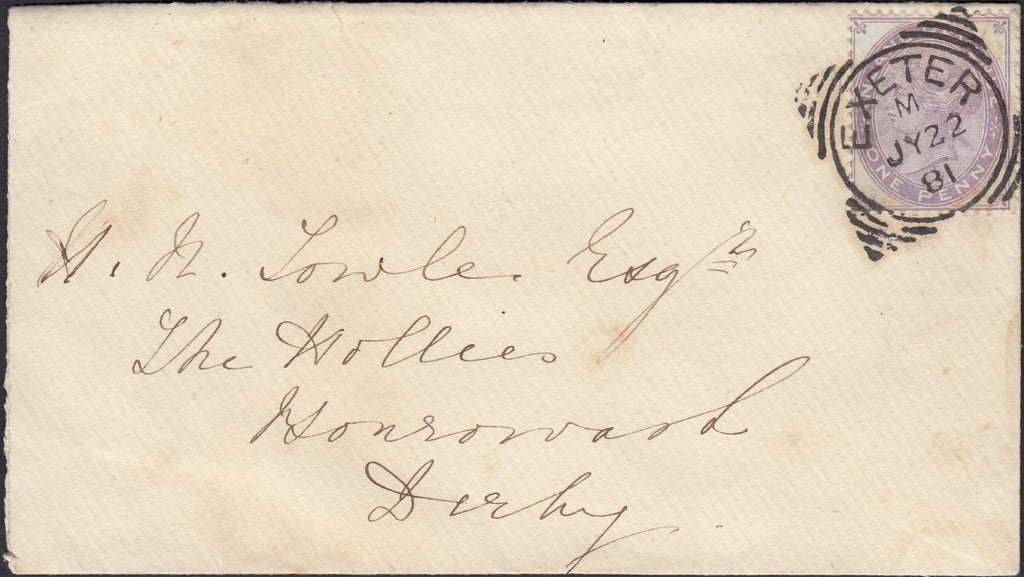 EXETER
M
JY 22
81
ONE PENNY
H. N. Towle. Esqre
The Hollies
Borrowash
Derby